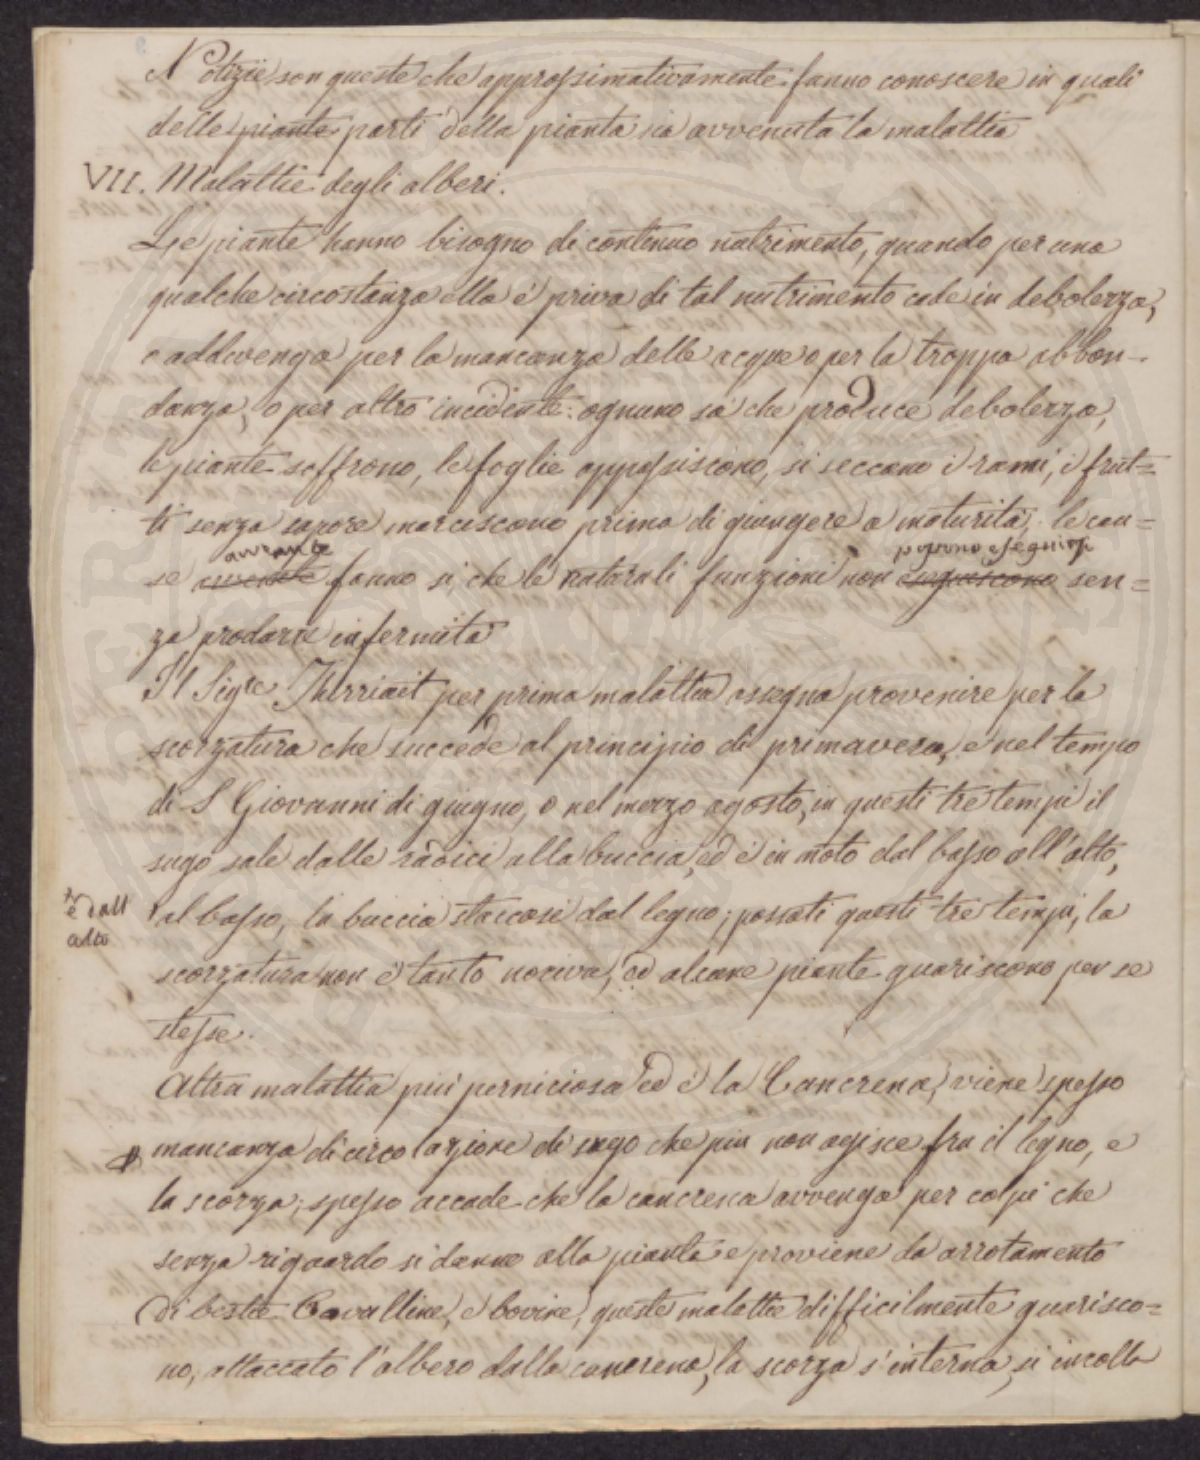 Notizie son queste che approssimativamente fanno conoscere in quali
delle piante parti della pianta sia avvenuta la malattia
VII. Malattie degli alberi.
Le piante hanno bisogno di continuo nutrimento, quando per una
qualche circostanza ella è priva di tal nutrimento cade in debolezza,
o addivenga per la mancanza delle acque o per la troppa abbon-
danza, o per altro incidente: ognuno sà che produce debolezza,
le piante soffrono, le foglie appassiscono, si seccano i rami, i frut=
ti senza sapore marciscono prima di giungere a maturità; le cau=
avvenute possono eseguirsi
se fanno si che le naturali funzioni non sen=
za produrre infermità
Il Sigre per prima malattia assegna provenire per la
scorzatura che succede al principio di primavera, e nel tempo
di S Giovanni di giugno, o nel mezzo agosto, in questi tre tempi il
sugo sale dalle radici alla buccia, ed è in moto dal basso all'alto,
e dall
alto
al basso, la buccia staccasi dal legno; passati questi tre tempi, la
scorzatura non è tanto nociva, ed alcune piante guariscono per se
stesse.
Altra malattia più perniciosa ed è la Cancrena, viene spesso
mancanza di circolazione di sugo che più non agisce fra il legno, e
la scorza; spesso accade che la cancrena avvenga per colpi che
senza riguardo si danno alla pianta e proviene da arrotamento
di bestie Cavalline, e bovine, queste malattie difficilmente guarisco=
no, attaccato l'albero dalla cancrena, la scorza s'interna, si incolla